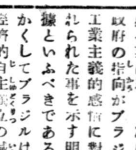 政府の指向がブラジ
工業主義的感情に對
れられた事を示す明
據といふべきである
かくしてブラジルは
濟的自主